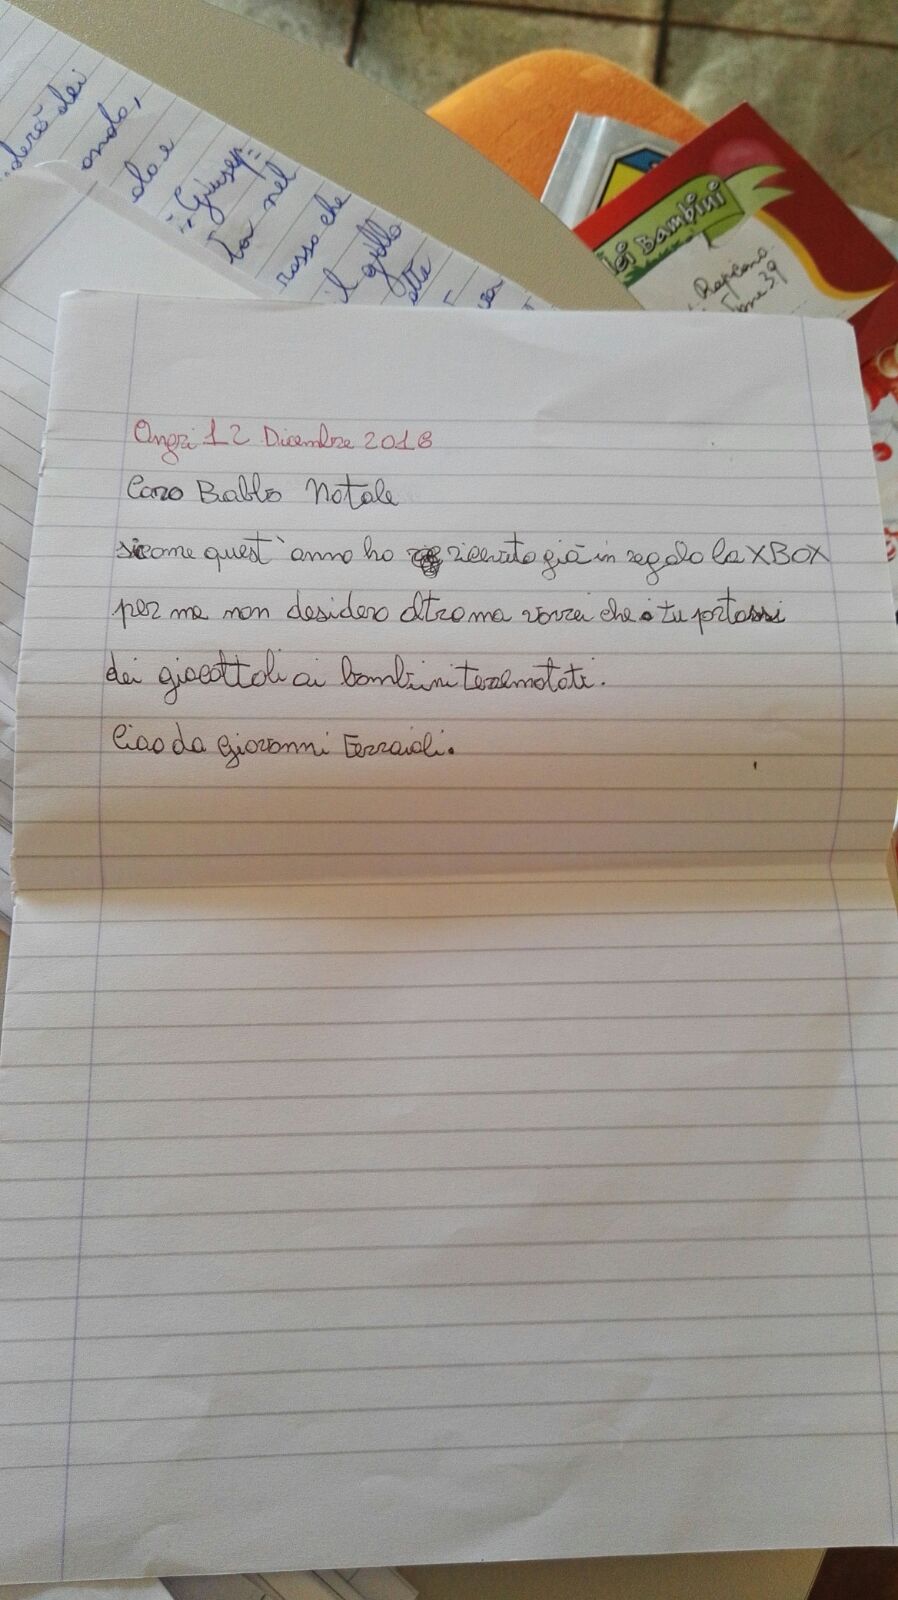 derò dei
ondo,
do e
Giusep=
ba nel
rosso che
il gallo
atta
dei Bambini
Rapicano
39
Angri 12 Dicembre 2016
Caro Babbo Natale
sicome quest'anno ho ricevuto già in regalo la XBOX
per me non desidero altro ma vorrei che tu portassi
dei giocattoli ai bambini terremotati.
Ciao da Giovanni Ferraioli.